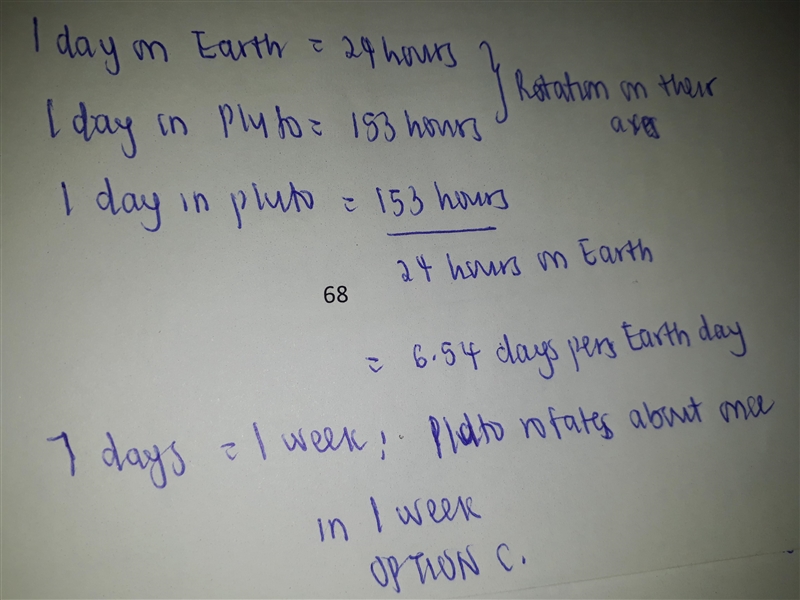 1 day on Earth = 24 hours
1 day in Pluto = 153 hours
} Rotation on their
axes
1 day in pluto = 153 hours
24 hours on Earth
68
= 6.54 days pers Earth day
7 days = 1 week; Pluto rotates about once
in 1 week
OPTION C.